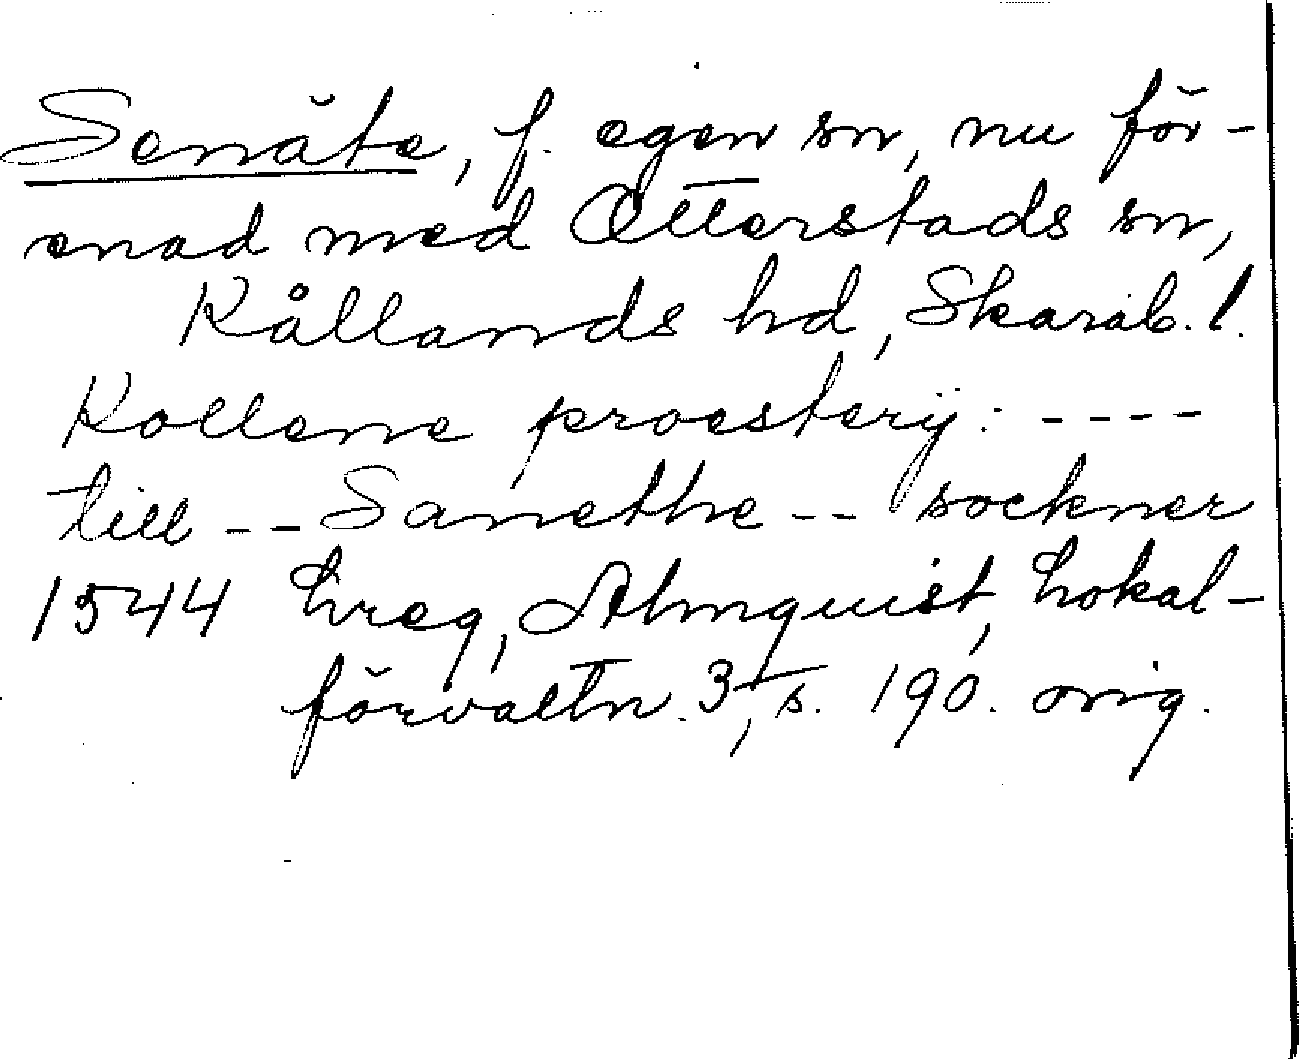 Senäte, f. egen sn, nu för-
enad med Otterstads sn,
Kållands hd, Skarab. l.
Kollene proesterij: ----
till -- Sanethe -- sockner
1544 Lreg, Almquist, Lokal-
förvaltn. 3, s. 190. orig.